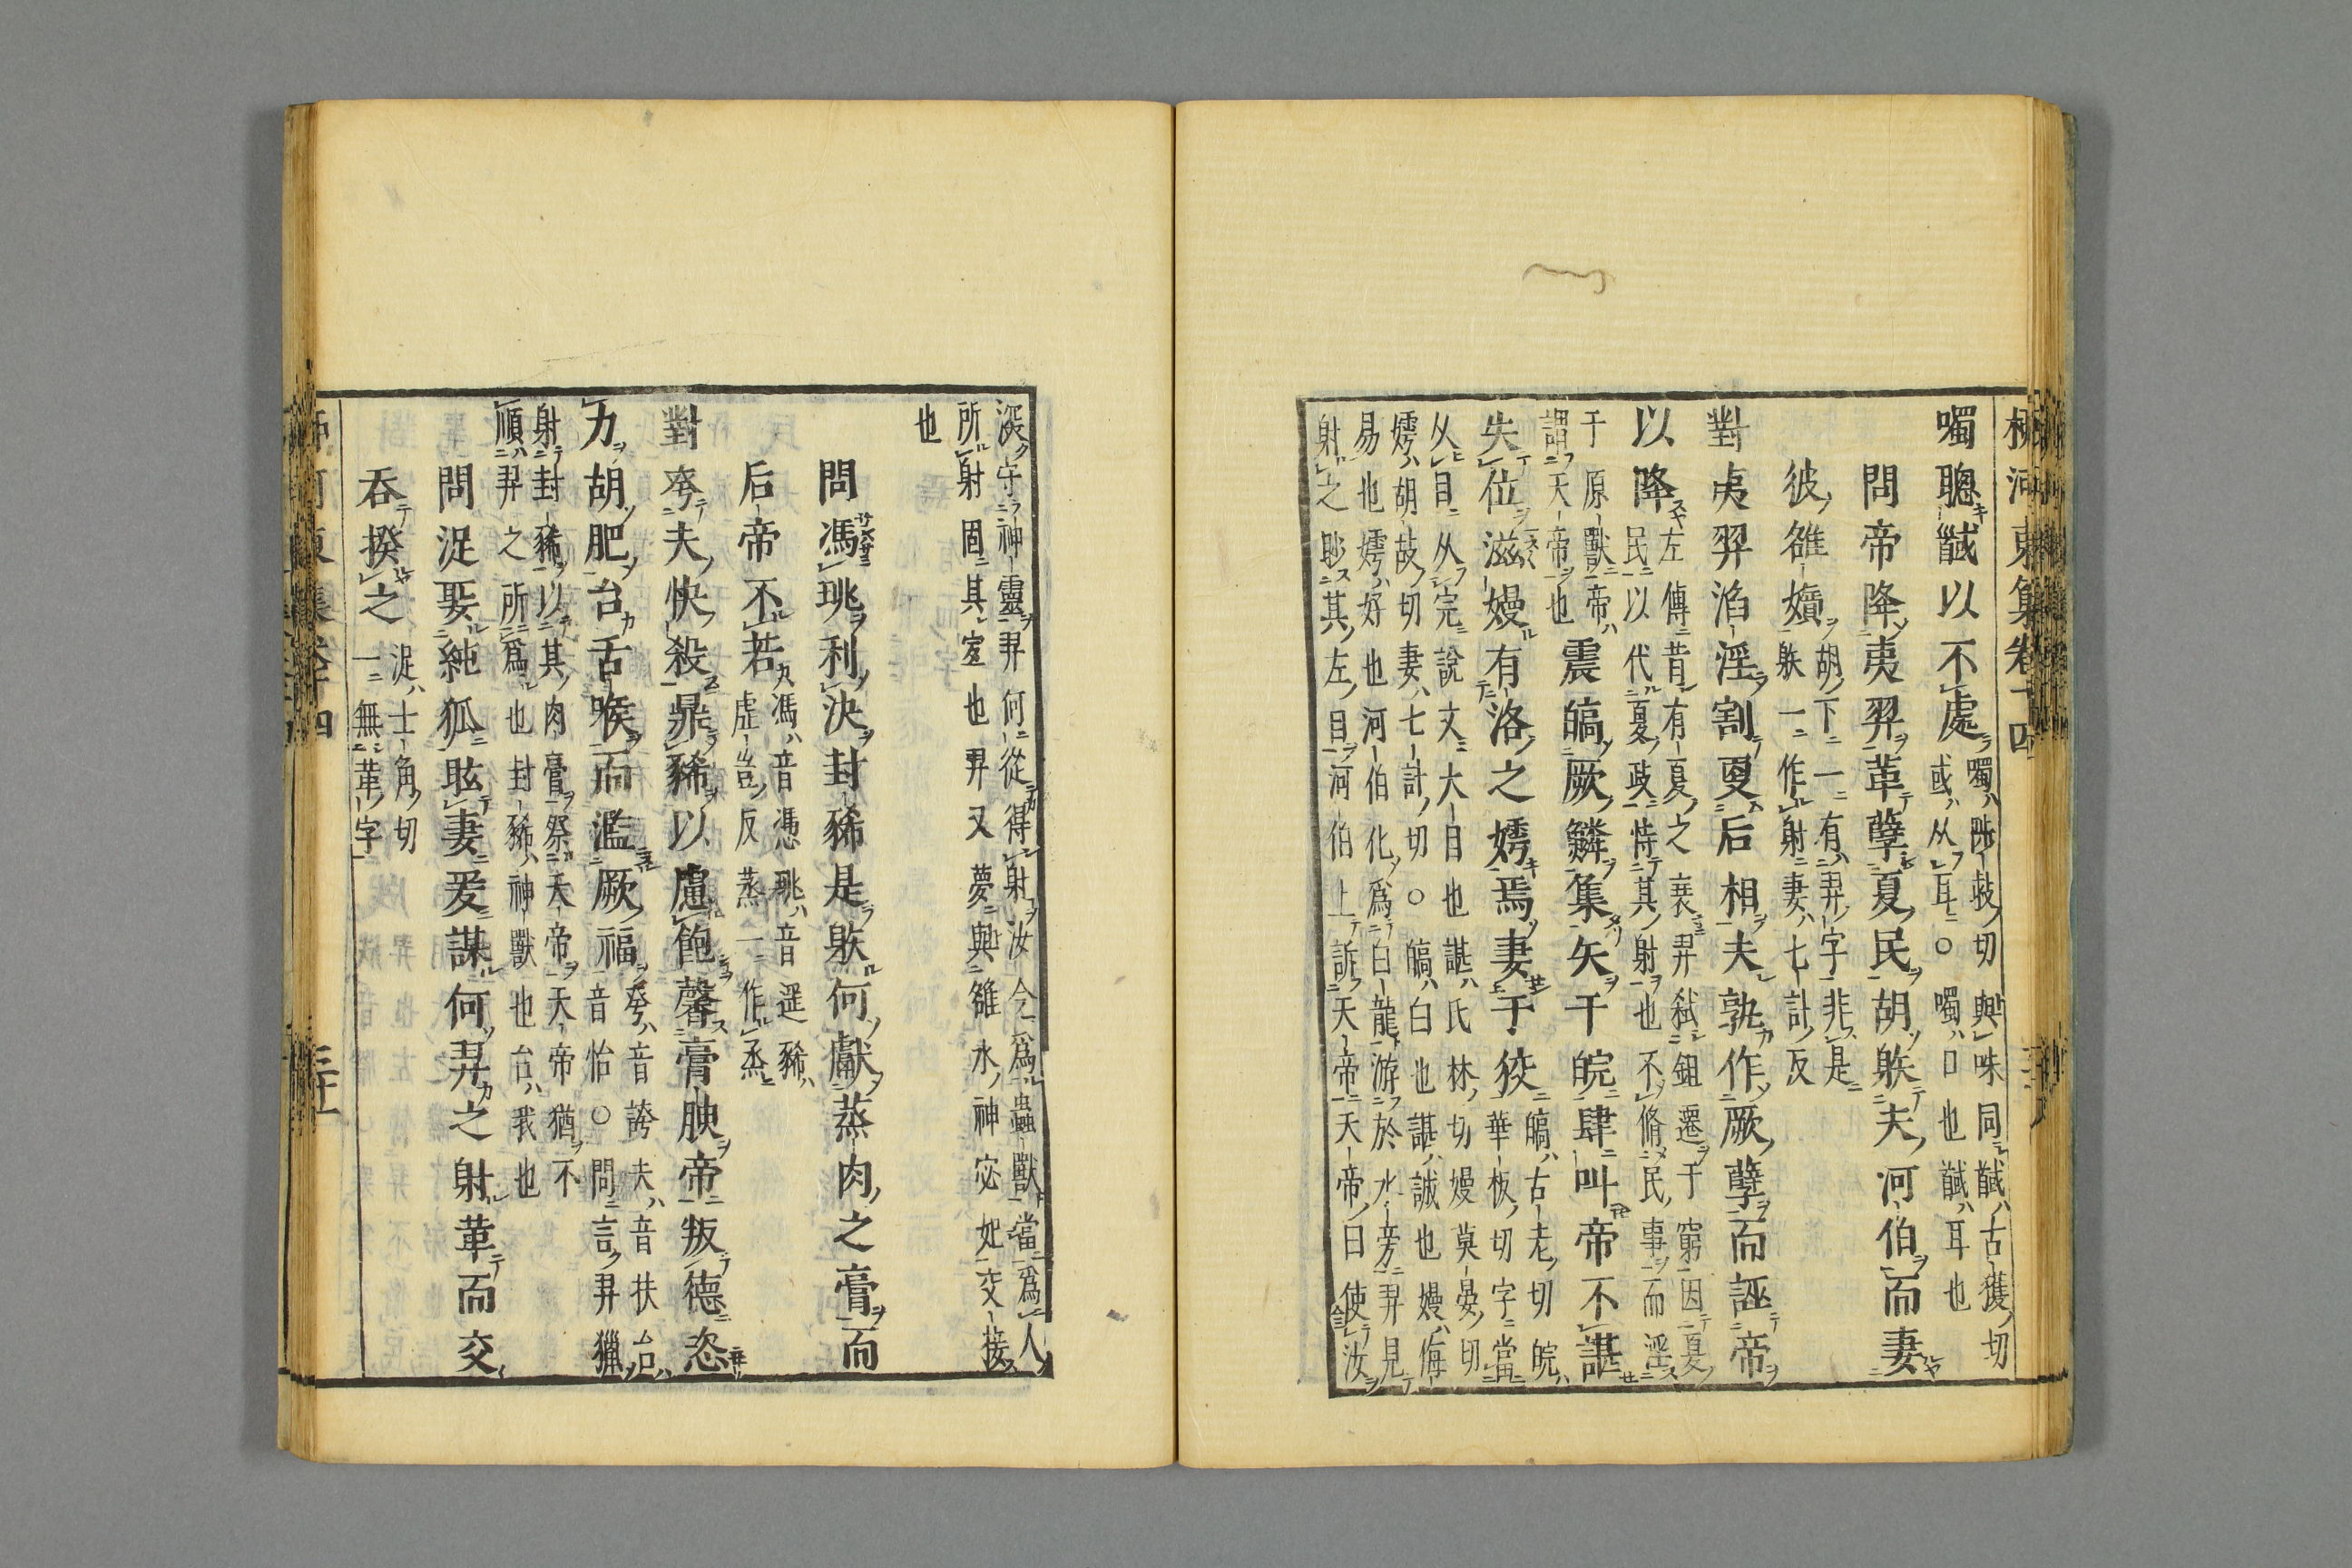 柳河東集卷十四
噣聰馘以不處
噣陟救切與咮同馘古獲切
或从耳○噣口也馘耳也
問帝降夷羿革孽夏民胡䠶夫河伯而妻
彼雒嬪
胡下一有羿字非是
䠶一作射妻七計反
對夷羿滔淫割夏后相夫孰作厥孽而誣帝
以降
左傳昔有夏之衰羿弒鉏遷于窮因夏
民以代夏政恃其射也不脩民事而淫
于原獸帝
謂天帝也
震皜厥鱗集矢于皖肆叫帝不諶
失位滋嫚有洛之嫮焉妻于狡
皜古老切皖
華板切字當
从目从完說文大目也諶氏林切嫚莫晏切
嫮胡故切妻七計切○皜白也諶誠也嫚侮
易也嫮好也河伯化爲白龍游於水旁羿見
射之眇其左目河伯上訴天帝天帝曰使汝
深守神靈羿何從得射汝今爲蟲獸當爲人
所射固其宜也羿又夢與雒水神宓妃交接
也
問馮珧利決封豨是䠶何獻蒸肉之膏而
后帝不若
馮音憑珧音遥豨
虛豈反蒸一作烝
對夸夫快殺鼎豨以慮飽馨膏腴帝叛德恣
力胡肥台舌喉而濫厥福
夸音誇夫音扶台
音怡○問言羿獵
射封豨以其肉膏祭天帝天帝猶不
順羿之所爲也封豨神獸也台我也
問浞娶純狐眩妻爰謀何羿之射革而交
吞揆之
浞士角切
一無革字